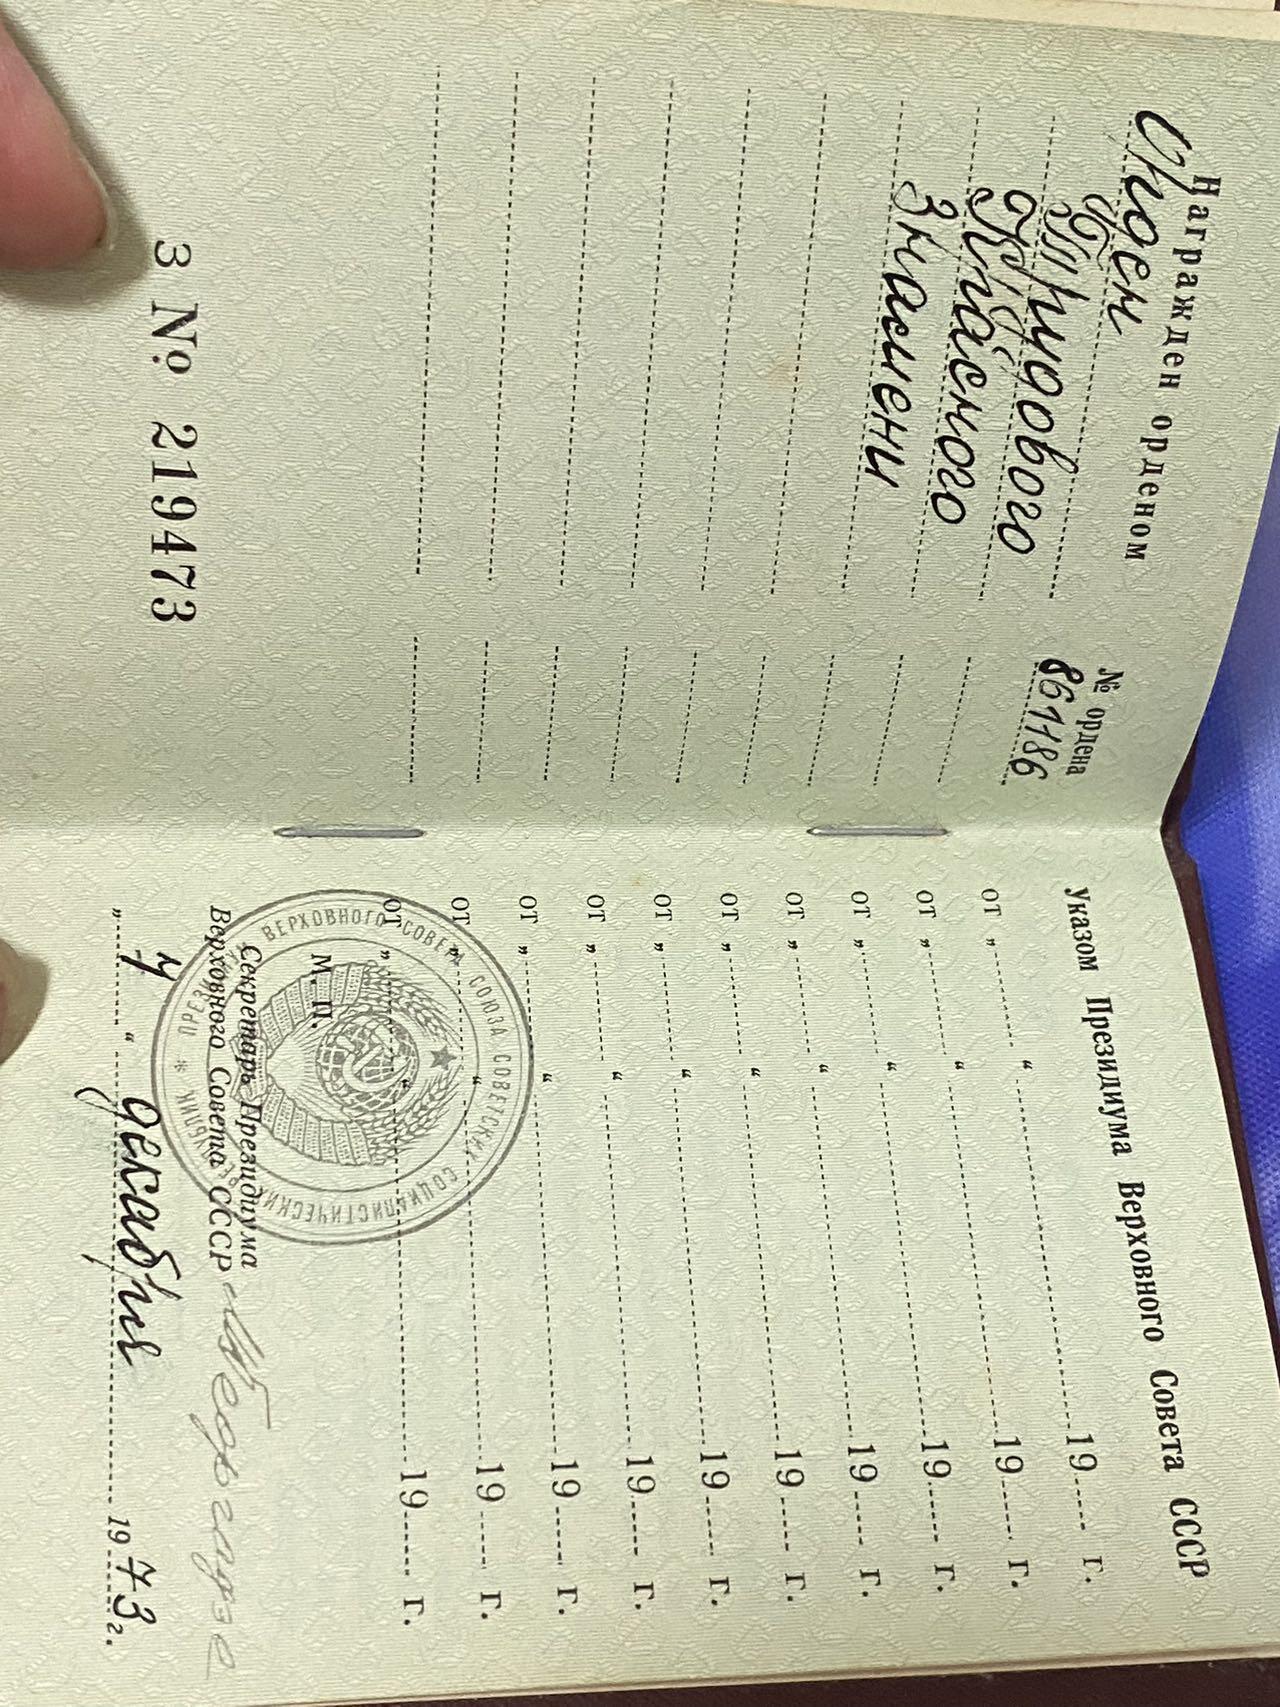 Награжден орденом
№ ордена
Орден
861186
Трудового
Красного
Знамени
З № 219473
Указом Президиума Верховного Совета СССР
от „ “ 19 г.
от „ “ 19 г.
от „ “ 19 г.
от „ “ 19 г.
от „ “ 19 г.
от „ “ 19 г.
от „ “ 19 г.
от „ “ 19 г.
от „ “ 19 г.
от „ “ 19 г.
М. П.
ПРЕЗИДИУМ ВЕРХОВНОГО СОВЕТА СОЮЗА СОВЕТСКИХ СОЦИАЛИСТИЧЕСКИХ РЕСПУБЛИК *
Секретарь Президиума
Верховного Совета СССР
„ 4 “ декабря 1973 г.